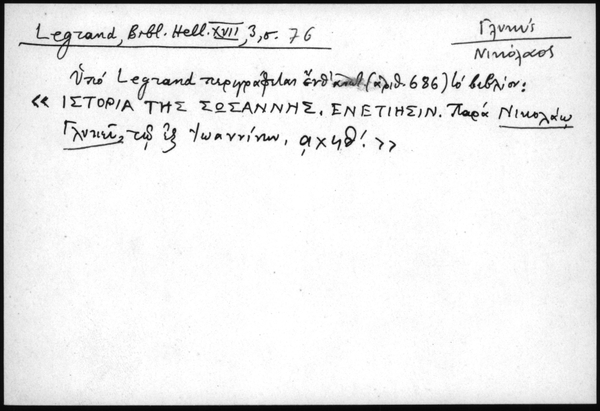 Legrand, Bibl. Hell. XVII, 3, σ. 76
Γλυκύς
Νικόλαος
Ὑπό Legrand περιγράφεται (ἀριθ. 686) τό βιβλίον:
« ΙΣΤΟΡΙΑ ΤΗΣ ΣΩΣΑΝΝΗΣ. ΕΝΕΤΙΗΣΙΝ. Παρά Νικολάῳ
Γλυκεῖ, τῷ ἐξ Ἰωαννίνων, αχπθ'. »